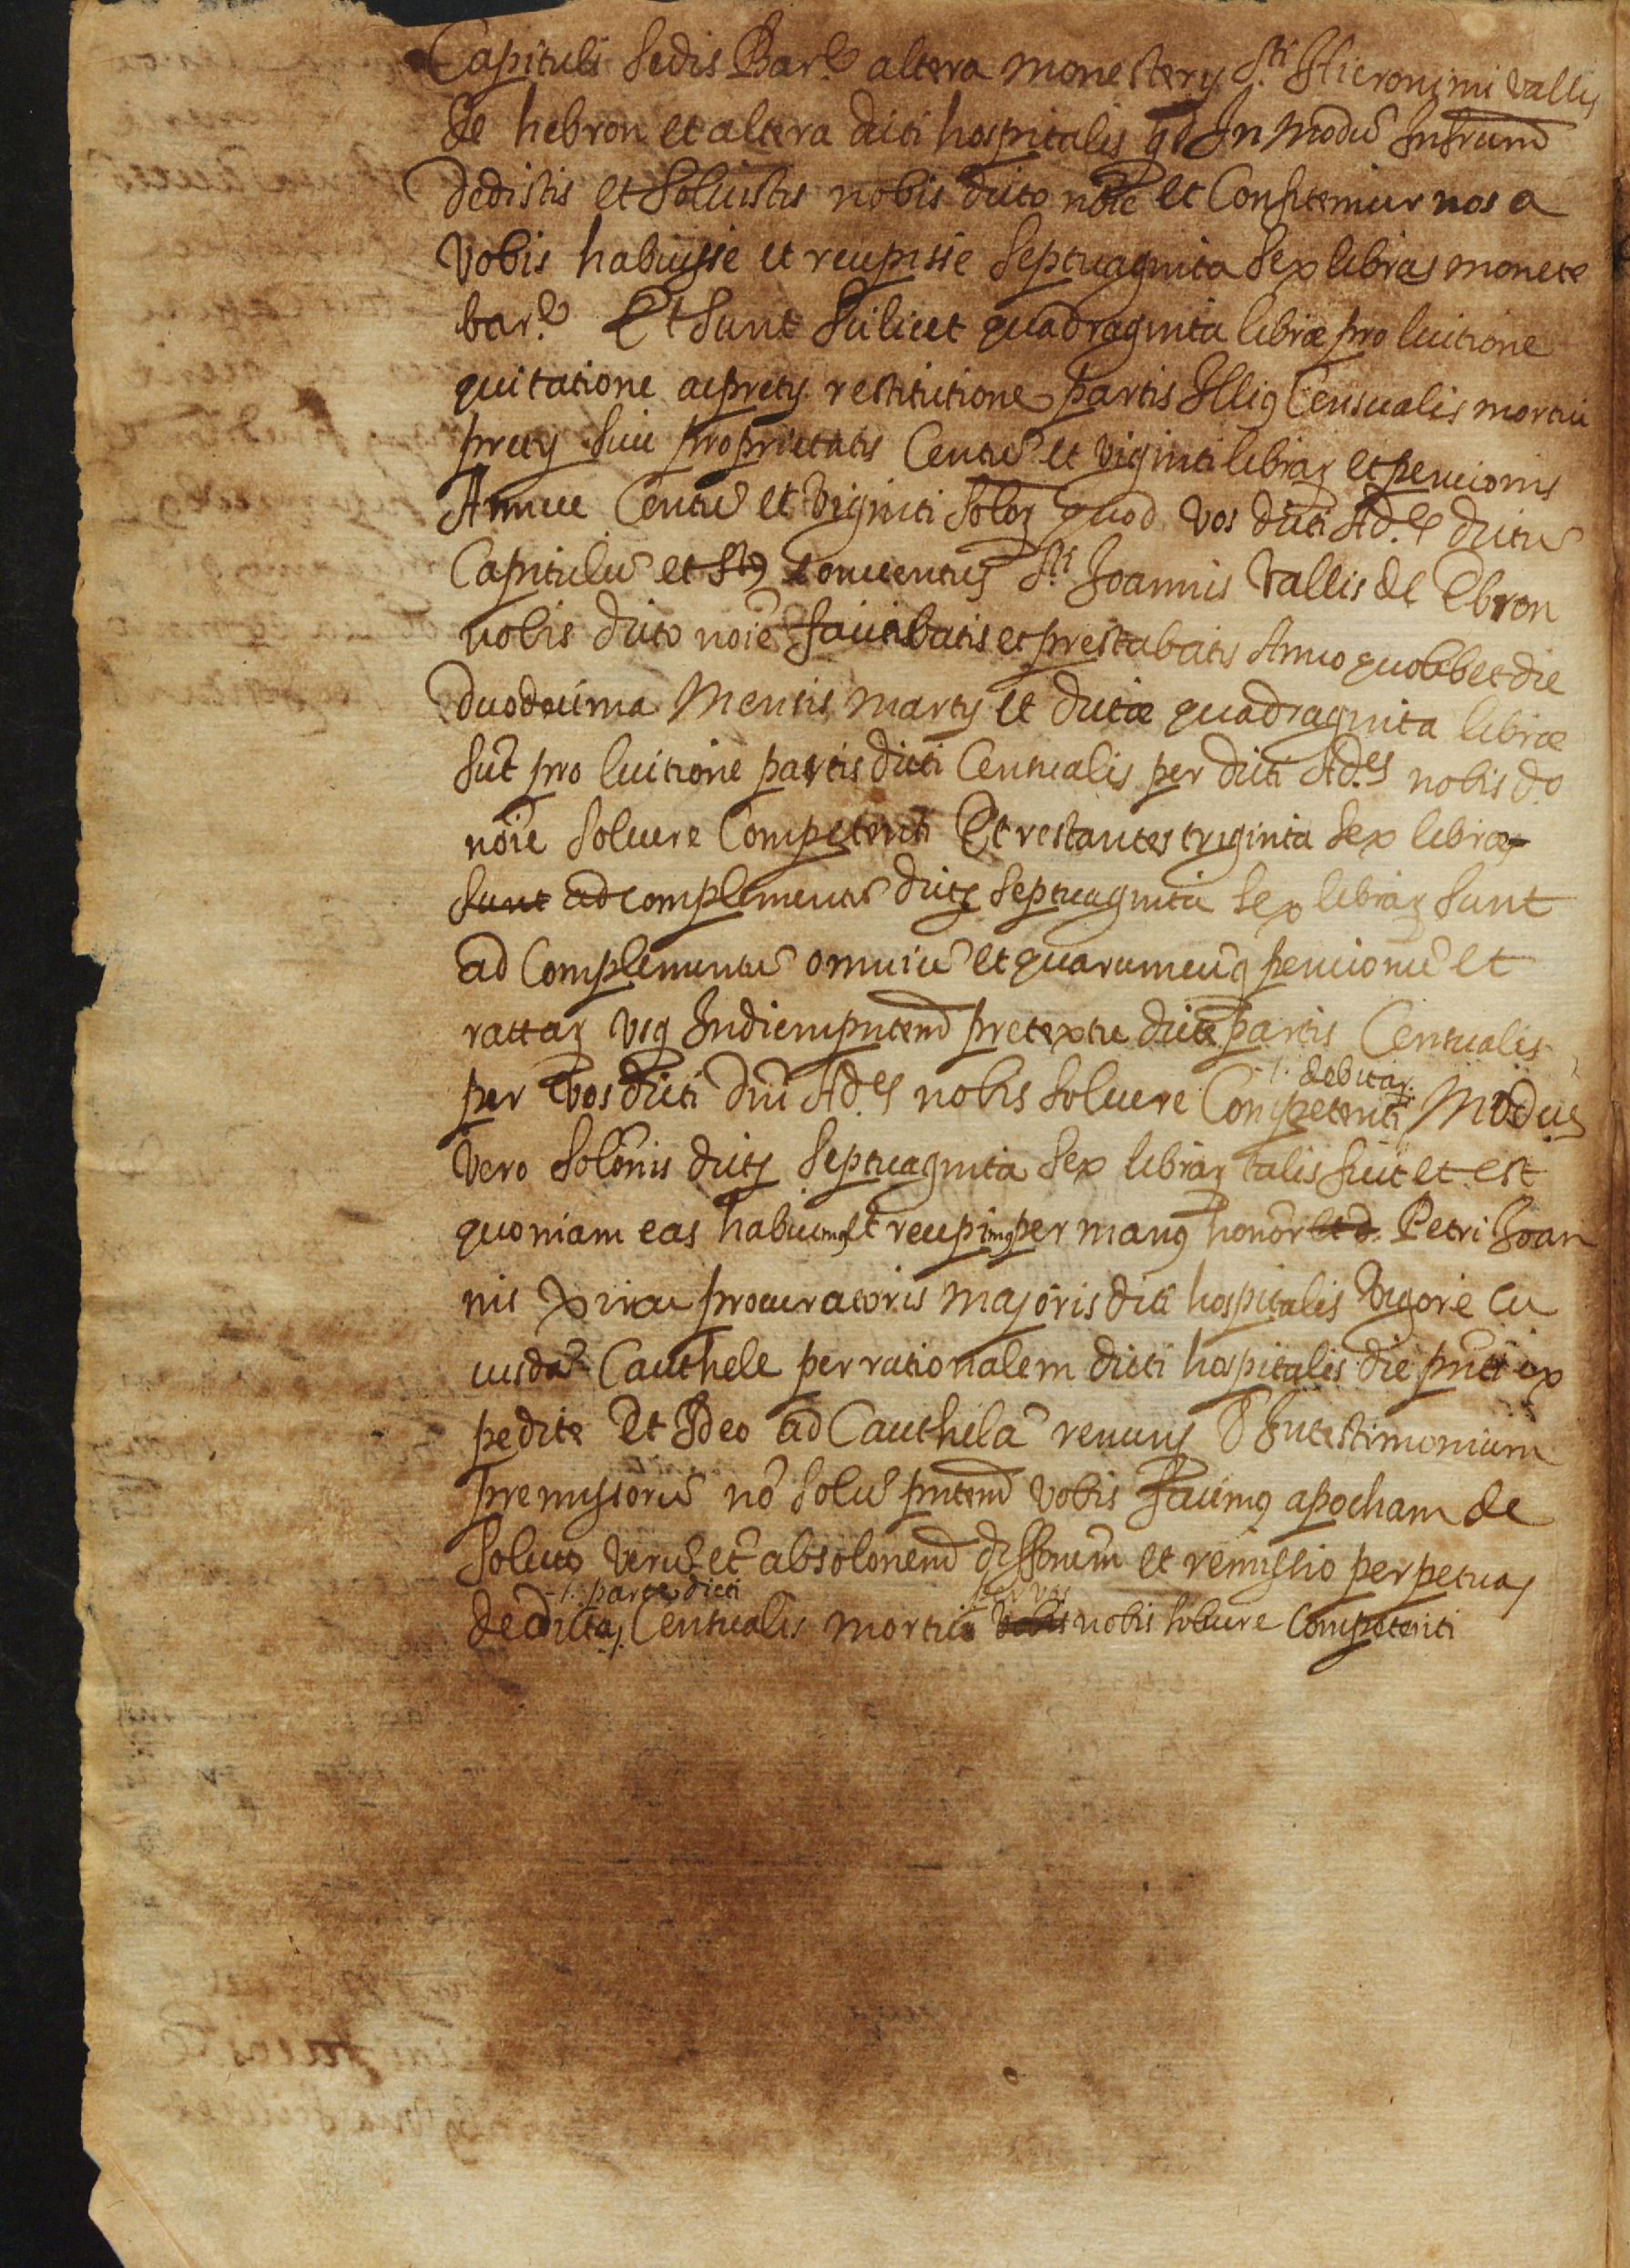 Capituli Sedis Barᵉ altera monestery Sᵗⁱ Hieronimi vallis
de hebron et altera dicti hospitalis qd In modũ Infrũm
dedistis et soluistis nobis dicto nõie et Confitemur nos a
vobis habuisse et recepisse septuaginta sex libras monete
barᵉ Et sunt scilicet quadraginta libræ pro luitione
quitatione ac prety restitutione partis Illiq Censualis mortui
prety sive proprietatis Centũ et viginti libraꝝ et pencionis
Annue Centũ et viginti soloꝝ quod vos dicti Adᵉˢ dictũ
Capitulũ et conventus Sᵗⁱ Joannis Vallis de Ebron
nobis dicto noiẽ faciebatis et prestabatis Anno quolibet die
duodecima Mensis marty et dictæ quadraginta libræ
sũt pro luitione partis dicti Censualis per dicti Adᵉˢ nobis do
nõie soluere Competenti Et restantes triginta sex libræ
sunt ad complementũ dictꝝ septuaginta sex libraꝝ sunt
ad Complementũ omniũ et quarumcũq pencionũ et
rattaꝝ usq Indiem pñtem pretextu dicte partis Censualis
per vos dicti dñi Adᵉˢ nobis soluere Competenti /. debitaꝝ. Modus
vero solõnis dictꝝ septuaginta sex libraꝝ talis fuit et est
quoniam eas habuimq et recepimq per manq honor Petri Joan
nis Xirau procuratoris majoris dicti hospitalis vigore cu
iusdã Cauthele per rationalem dicti hospitalis die pñti ex
pedite Et Ideo ad Cauthelã In testimonium
premissorũ nõ solũ pñtem vobis facimq apocham de
soluto verũ et absolonem diffonem et remissio perpetuas
-/. parte dicti per vos
de dicta/. Censualis mortui vobis nobis soluere Competenti